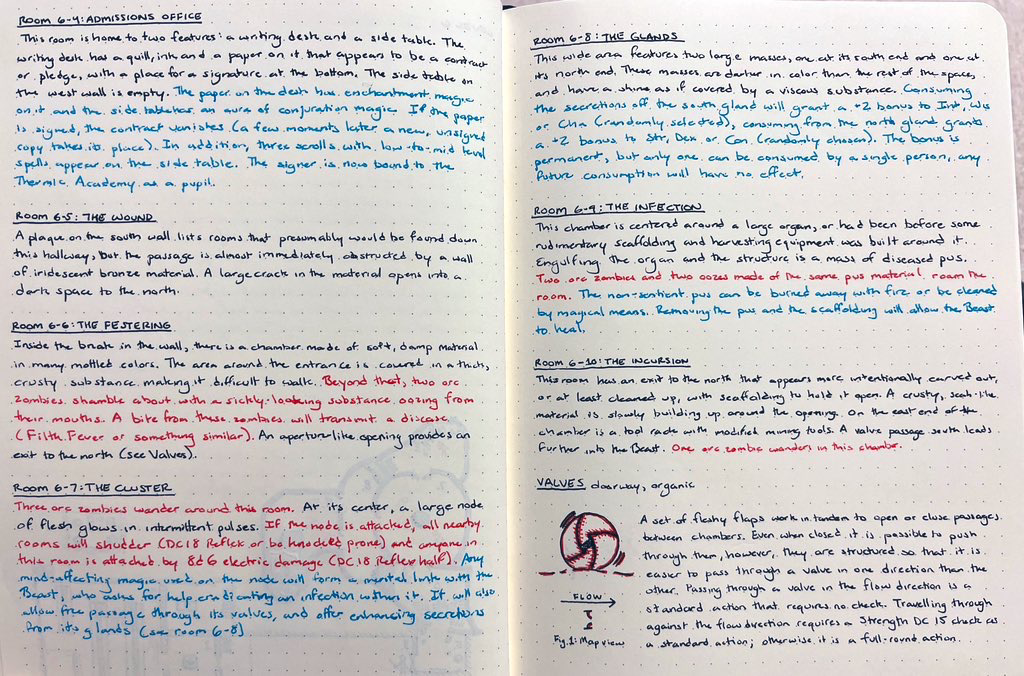 ROOM 6-4: ADMISSIONS OFFICE
This room is home to two features: a writing desk and a side table. The
writing desk has a quill, ink and a paper on it that appears to be a contract
or pledge, with a place for a signature at the bottom. The side table on
the west wall is empty. The paper on the desk has enchantment magic
on it and the side table has an aura of conjuration magic. If the paper
is signed, the contract vanishes (a few moments later a new, unsigned
copy takes its place). In addition, three scrolls with low-to-mid level
spells appear on the side table. The signer is now bound to the
Thermic Academy as a pupil.
ROOM 6-5: THE WOUND
A plaque on the south wall lists rooms that presumably would be found down
this hallway, but the passage is almost immediately obstructed by a wall
of iridescent bronze material. A large crack in the material opens into a
dark space to the north.
ROOM 6-6: THE FESTERING
Inside the break in the wall, there is a chamber made of soft, damp material
in many mottled colors. The area around the entrance is covered in a thick,
crusty substance making it difficult to walk. Beyond that, two orc
zombies shamble about with a sickly-looking substance oozing from
their mouths. A bite from these zombies will transmit a disease
(Filth Fever or something similar). An aperture-like opening provides an
exit to the north (see Valves).
ROOM 6-7: THE CLUSTER
Three orc zombies wander around this room. At its center, a large node
of flesh glows in intermittent pulses. If the node is attacked, all nearby
rooms will shudder (DC 18 Reflex or be knocked prone) and anyone in
this room is attacked by 8d6 electric damage (DC 18 Reflex half). Any
mind-affecting magic used on the node will form a mental link with the
Beast, who asks for help eradicating an infection within it. It will also
allow free passage through its valves, and offer enhancing secretions
from its glands (see room 6-8)
ROOM 6-8: THE GLANDS
This wide area features two large masses, one at its south end and one at
its north end. These masses are darker in color than the rest of the space,
and have a shine as if covered by a viscous substance. Consuming
the secretions off the south gland will grant a +2 bonus to Int, Wis
or Cha (randomly selected), consuming from the north gland grants
a +2 bonus to Str, Dex or Con (randomly chosen). The bonus is
permanent, but only one can be consumed by a single person, any
future consumption will have no effect.
ROOM 6-9: THE INFECTION
This chamber is centered around a large organ, or had been before some
rudimentary scaffolding and harvesting equipment was built around it.
Engulfing the organ and the structure is a mass of diseased pus.
Two orc zombies and two oozes made of the same pus material roam the
room. The non-sentient pus can be burned away with fire or be cleaned
by magical means. Removing the pus and the scaffolding will allow the Beast
to heal.
ROOM 6-10: THE INCURSION
This room has an exit to the north that appears more intentionally carved out,
or at least cleaned up, with scaffolding to hold it open. A crusty, scab-like
material is slowly building up around the opening. On the east end of the
chamber is a tool rack with modified mining tools. A valve passage south leads
further into the Beast. One orc zombie wanders in this chamber.
VALVES doorway, organic
A set of fleshy flaps work in tandem to open or close passages
between chambers. Even when closed it is possible to push
through them, however, they are structured so that it is
easier to pass through a valve in one direction than the
other. Passing through a valve in the flow direction is a
standard action that requires no check. Travelling through
against the flow direction requires a Strength DC 15 check as
a standard action; otherwise it is a full-round action.
FLOW
Fig. 1: Map view